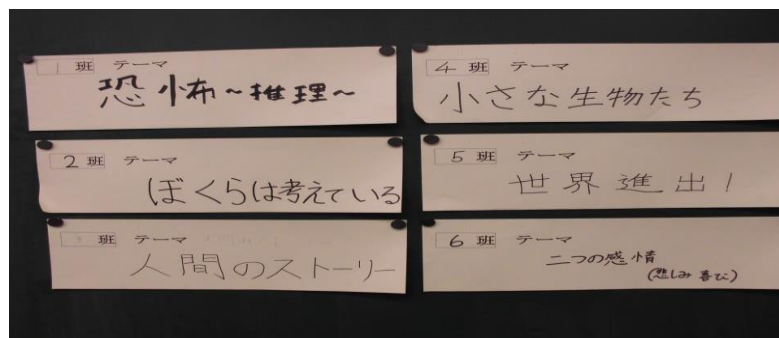 1 班 テーマ
恐怖~推理~
2 班 テーマ
ぼくらは考えている
班 テーマ
人間のストーリー
4 班 テーマ
小さな生物たち
5 班 テーマ
世界進出!
6 班 テーマ
二つの感情
(悲しみ 喜び)